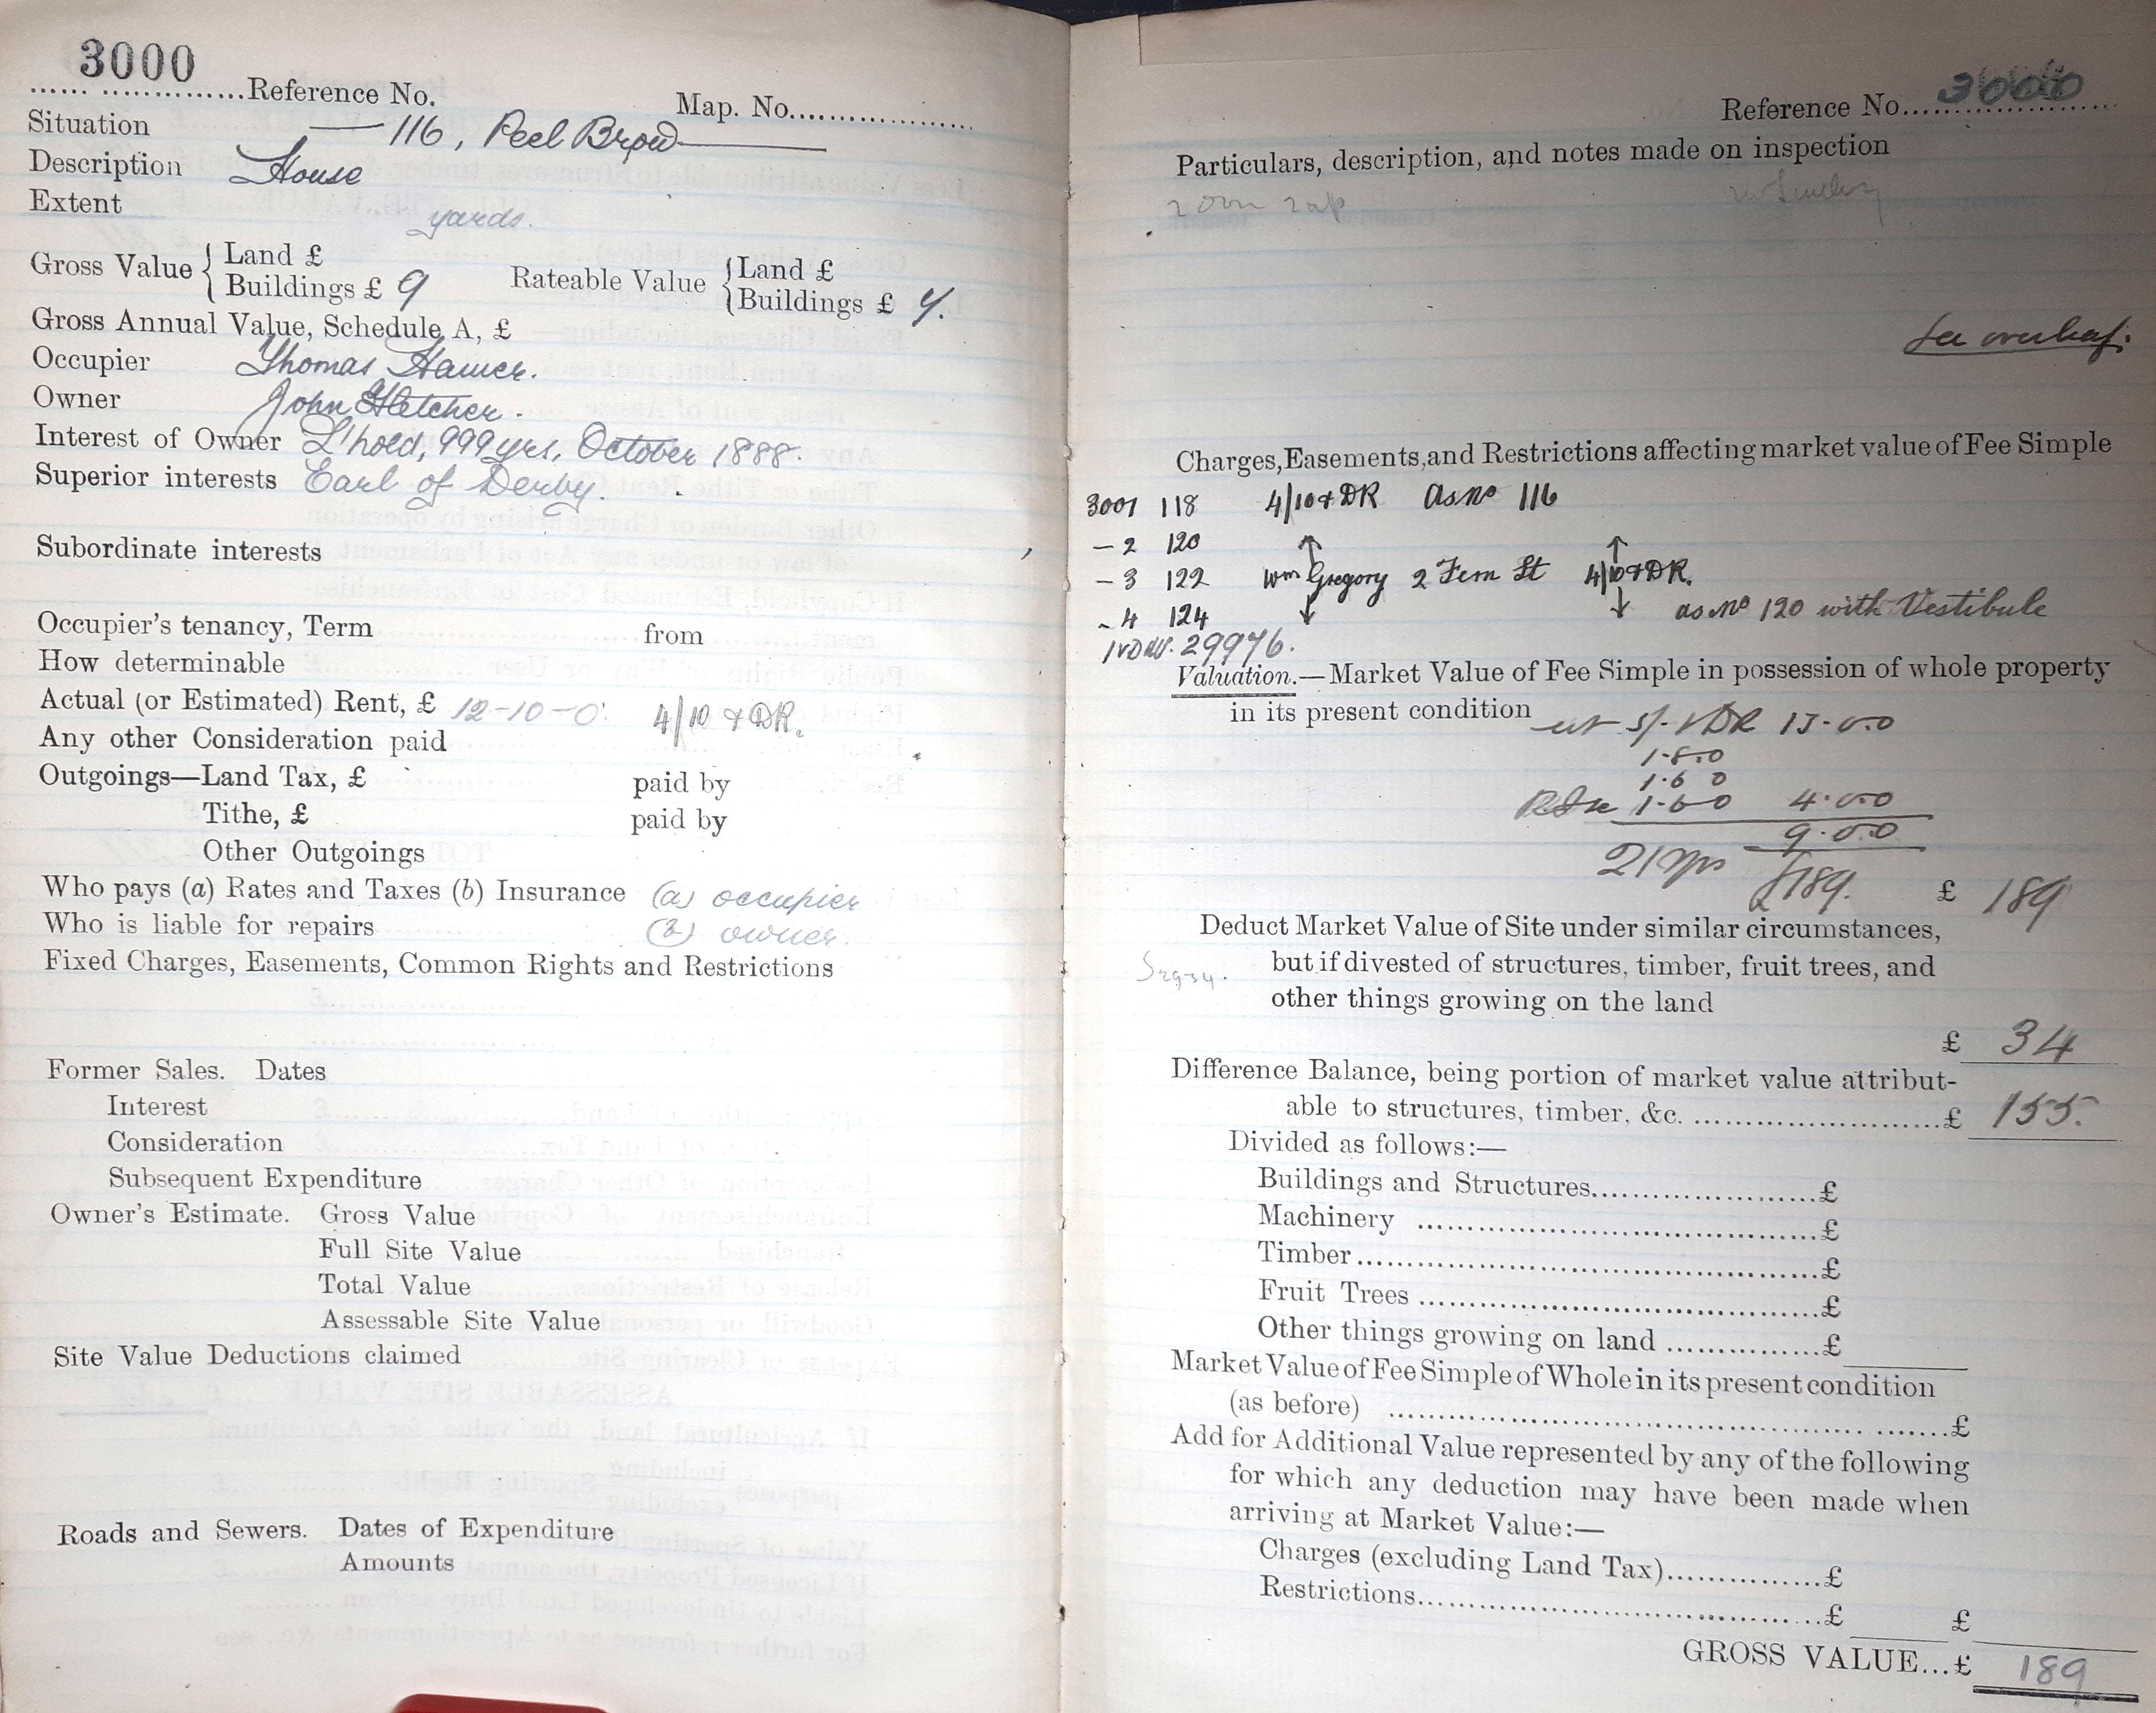 3000
Reference No. Map. No.
Situation 116, Peel Brow
Description House
Extent yards.
Gross Value { Land £ Buildings £ 9 Rateable Value { Land £ Buildings £ 7.
Gross Annual Value, Schedule A, £
Occupier Thomas Hamer.
Owner John Fletcher.
Interest of Owner L'hold, 999 yrs, October 1888.
Superior interests Earl of Derby.
Subordinate interests
Occupier's tenancy, Term from
How determinable
Actual (or Estimated) Rent, £ 12-10-0. 4/10 & DR.
Any other Consideration paid
Outgoings—Land Tax, £ paid by
Tithe, £ paid by
Other Outgoings
Who pays (a) Rates and Taxes (b) Insurance (a) occupier
Who is liable for repairs (b) owner.
Fixed Charges, Easements, Common Rights and Restrictions
Former Sales. Dates
Interest
Consideration
Subsequent Expenditure
Owner's Estimate. Gross Value
Full Site Value
Total Value
Assessable Site Value
Site Value Deductions claimed
Roads and Sewers. Dates of Expenditure
Amounts
Reference No. 3000
Particulars, description, and notes made on inspection
See overleaf.
Charges, Easements, and Restrictions affecting market value of Fee Simple
3001 118 4/10 & DR As No 116
- 2 120
- 3 122 Wm Gregory 2 Fern St 4/10 & DR.
- 4 124 as No 120 with Vestibule
29976.
Valuation.—Market Value of Fee Simple in possession of whole property
in its present condition 5/- & DR 13-0-0
1-8-0
1-6-0
1-6-0 4-0-0
9-0-0
21 yrs £189. £ 189
Deduct Market Value of Site under similar circumstances,
but if divested of structures, timber, fruit trees, and
other things growing on the land
£ 34
Difference Balance, being portion of market value attribut-
able to structures, timber, &c. £ 155.
Divided as follows:—
Buildings and Structures £
Machinery £
Timber £
Fruit Trees £
Other things growing on land £
Market Value of Fee Simple of Whole in its present condition
(as before) £
Add for Additional Value represented by any of the following
for which any deduction may have been made when
arriving at Market Value:—
Charges (excluding Land Tax) £
Restrictions £ £
GROSS VALUE...£ 189